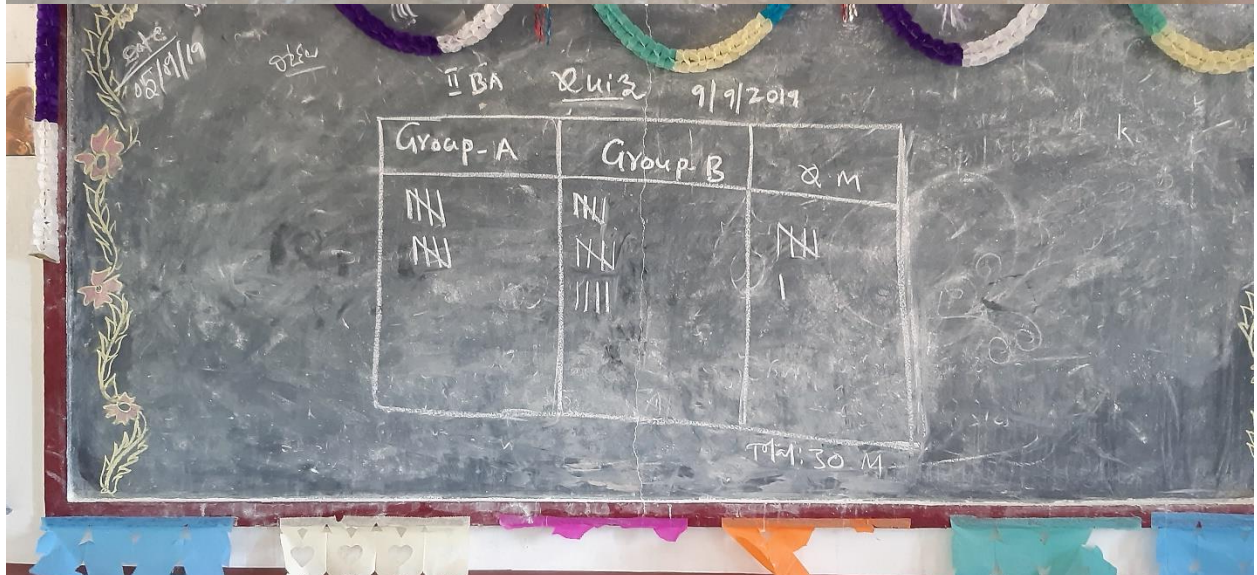 05/9/19
II BA Quiz 9/9/2019
Group-A Group-B Q M
Total: 30 M
k